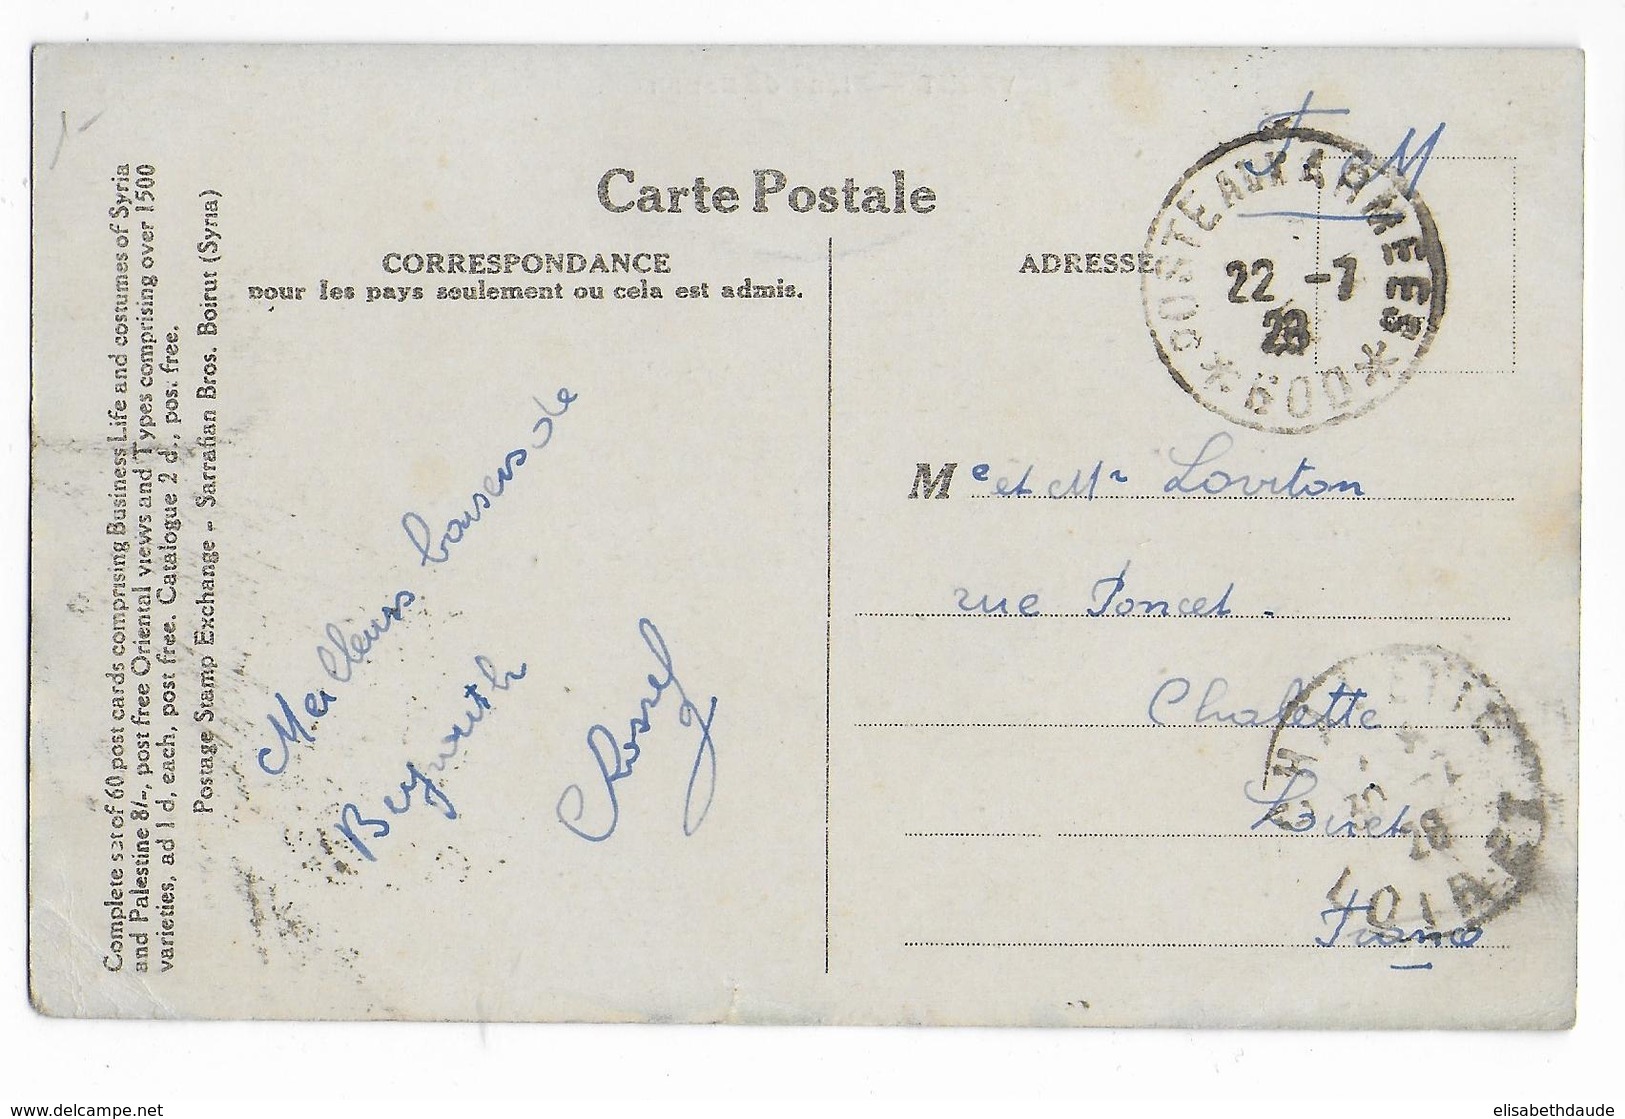 F M
Carte Postale
CORRESPONDANCE
pour les pays seulement ou cela est admis.
ADRESSE
POSTE AUX ARMEES
22 -7
28
* 600 *
Complete set of 60 post cards comprising Business Life and costumes of Syria
and Palestine 8/-, post free Oriental views and Types comprising over 1500
varieties, ad 1 d, each, post free. Catalogue 2 d., post free.
Postage Stamp Exchange - Sarrafian Bros. Boirut (Syria)
Meilleurs bonsers de
Beyrouth
M e et Mr Loviton
rue Poncet.
Chalette
Loiret
France
CHALETTE
30 -7
28
LOIRET
www.delcampe.net
elisabethdaude